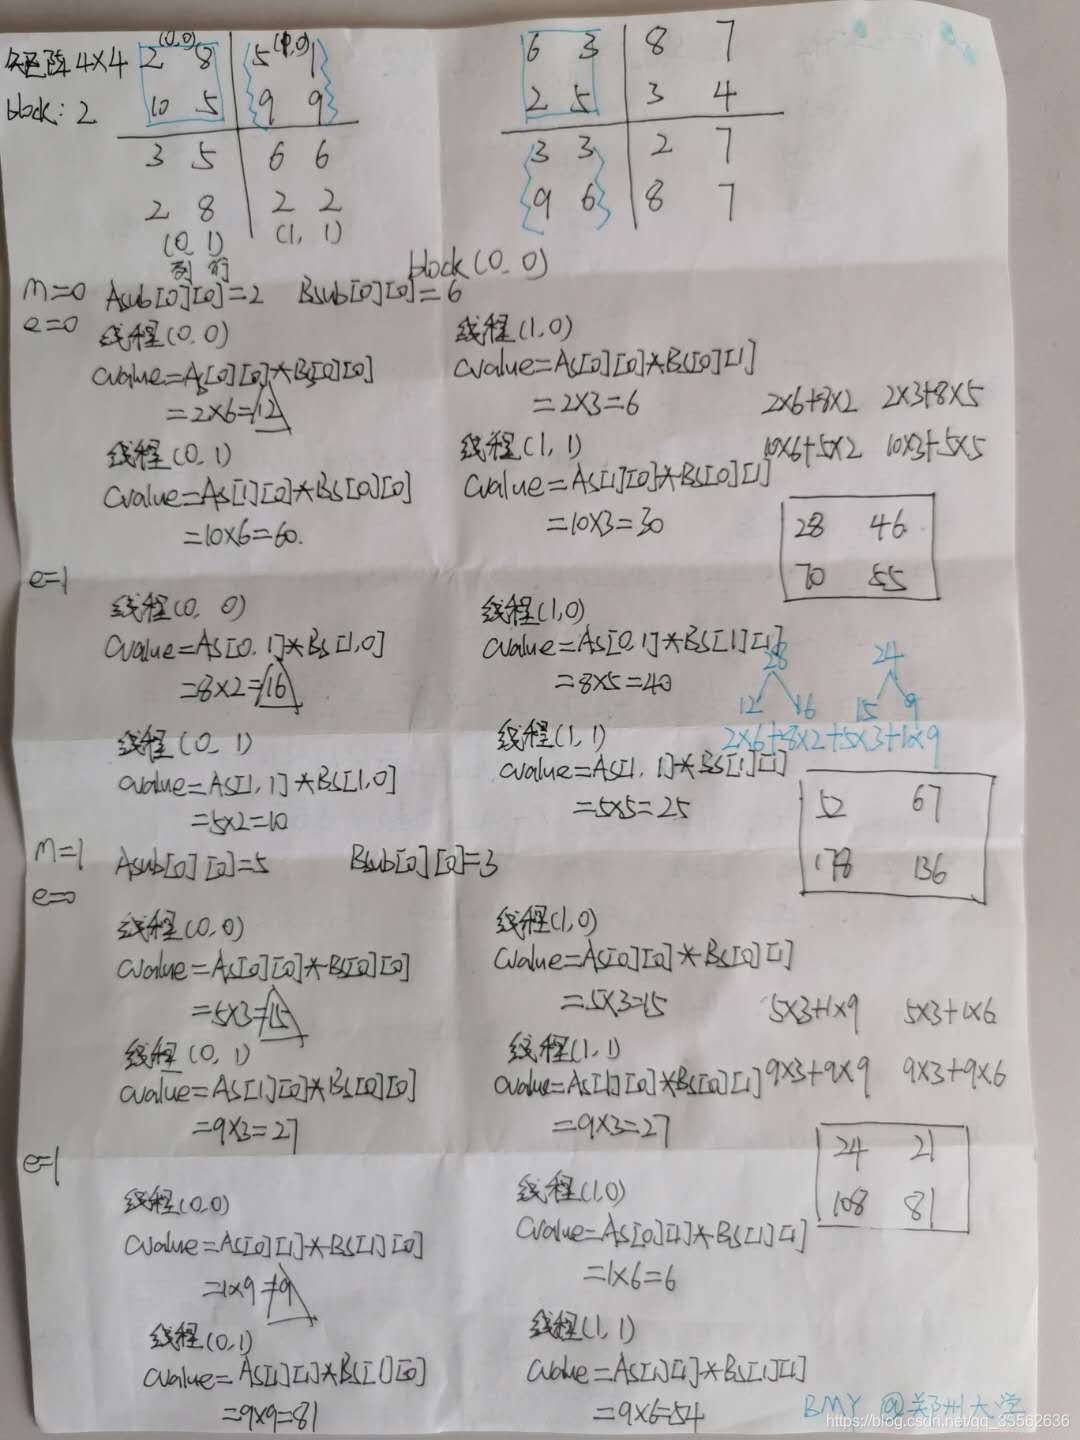 矩阵4×4 2 (0,0) 8 5 (1,0) 1 6 3 8 7
block: 2 10 5 9 9 2 5 3 4
3 5 6 6 3 3 2 7
2 8 2 2 9 6 8 7
(0, 1) (1, 1)
列 行 block(0,0)
m=0 Asub[0][0]=2 Bsub[0][0]=6
e=0 线程(0,0) 线程(1,0)
cvalue=As[0][0]*Bs[0][0] cvalue=As[0][0]*Bs[0][1]
=2×6=12 =2×3=6 2×6+8×2 2×3+8×5
线程(0,1) 线程(1,1) 10×6+5×2 10×3+5×5
cvalue=As[1][0]*Bs[0][0] cvalue=As[1][0]*Bs[0][1]
=10×6=60. =10×3=30 28 46
e=1 70 55
线程(0,0) 线程(1,0)
cvalue=As[0,1]*Bs[1,0] cvalue=As[0,1]*Bs[1][1]
=8×2=16 =8×5=40 28 24
12 16 15 9
线程(0,1) 线程(1,1) 2×6+8×2+5×3+1×9
cvalue=As[1,1]*Bs[1,0] cvalue=As[1,1]*Bs[1][1]
=5×2=10 =5×5=25 52 67
m=1 Asub[0][0]=5 Bsub[0][0]=3 178 136
e=0
线程(0,0) 线程(1,0)
cvalue=As[0][0]*Bs[0][0] cvalue=As[0][0]*Bs[0][1]
=5×3=15 =5×3=15 5×3+1×9 5×3+1×6
线程(0,1) 线程(1,1)
cvalue=As[1][0]*Bs[0][0] cvalue=As[1][0]*Bs[0][1] 9×3+9×9 9×3+9×6
=9×3=27 =9×3=27
e=1 24 21
线程(0,0) 线程(1,0) 108 81
cvalue=As[0][1]*Bs[1][0] cvalue=As[0][1]*Bs[1][1]
=1×9=9 =1×6=6
线程(0,1) 线程(1,1)
cvalue=As[1][1]*Bs[1][0] cvalue=As[1][1]*Bs[1][1]
=9×9=81 =9×6=54 BMY @郑州大学
https://blog.csdn.net/qq_33562636